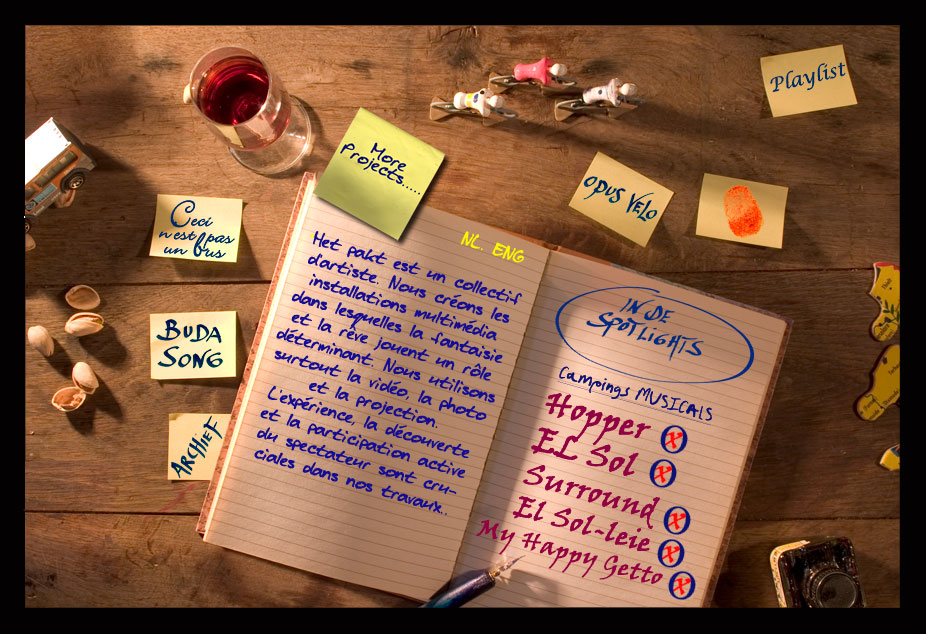 Playlist
More
Projects.....
OPUS VELO
Ceci
n'est pas
un bus
BUDA
SONG
ARCHIEF
NL. ENG
Het pakt est un collectif
d'artiste. Nous créons les
installations multimédia
dans lesquelles la fantaisie
et la rêve jouent un rôle
déterminant. Nous utilisons
surtout la vidéo, la photo
et la projection.
L'expérience, la découverte
et la participation active
du spectateur sont cru-
ciales dans nos travaux..
IN DE
SPOTLIGHTS
Campings MUSICALS
Hopper X
EL Sol X
Surround X
El Sol-leie X
My Happy Getto X